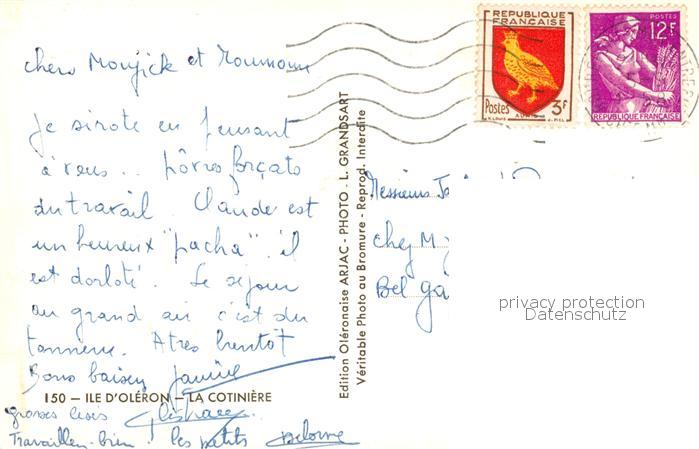 chers Moujick et Roumoune
Je sirote en pensant
à vous... pôvres forçats
du travail. Claude est
un heureux "pacha" il
est dorloté. Le séjour
au grand air c'est du
tonnerre. A très bientôt
Bons baisers Janine
150 — ILE D'OLÉRON — LA COTINIÈRE
grosses bises
Travaillez bien. les petits Delorme
Edition Oléronaise ARJAC - PHOTO - L. GRANDSART
Véritable Photo au Bromure - Reprod. Interdite
REPUBLIQUE
FRANÇAISE
Postes 3F
AUNIS
POSTES
12F
REPUBLIQUE FRANÇAISE
Messieurs
chez M
Bel
privacy protection
Datenschutz